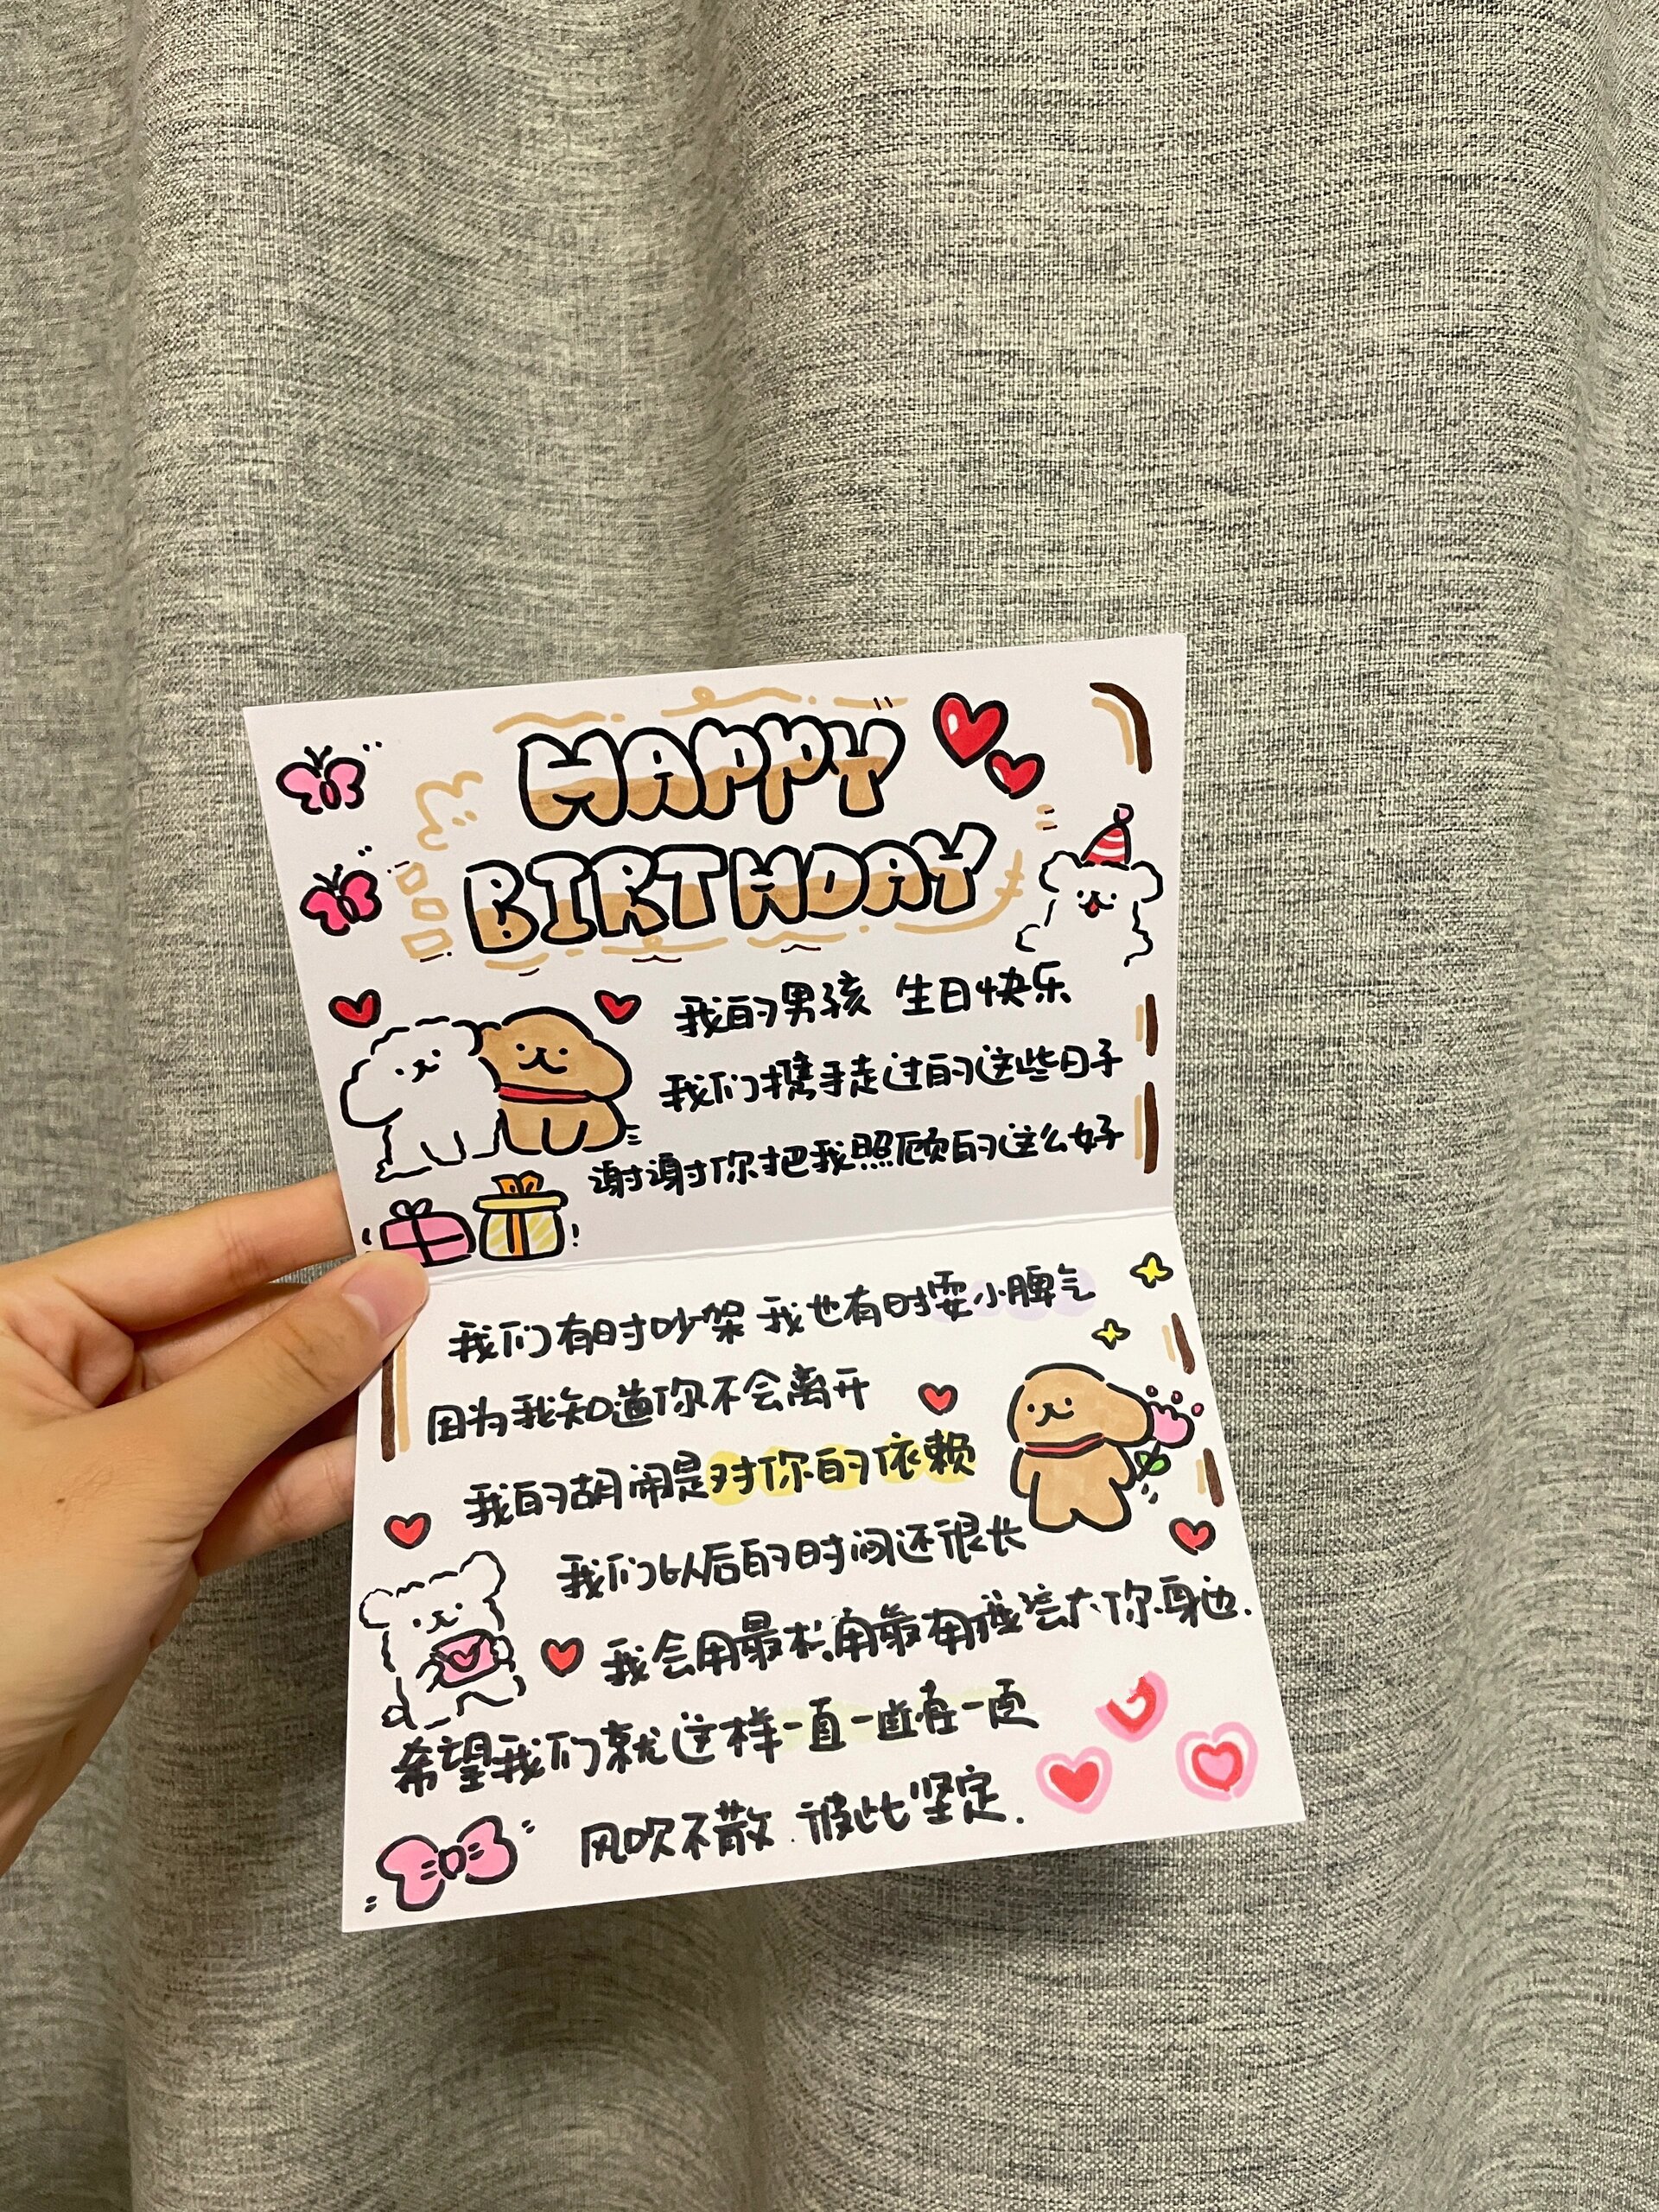 HAPPY
BIRTHDAY
我的男孩 生日快乐
我们携手走过的这些日子
谢谢你把我照顾的这么好
我们有时吵架 我也有时耍小脾气
因为我知道你不会离开
我的胡闹是对你的依赖
我们以后的时间还很长
我会用最
希望我们就这样一直一直在一直
风吹不散 彼此坚定.